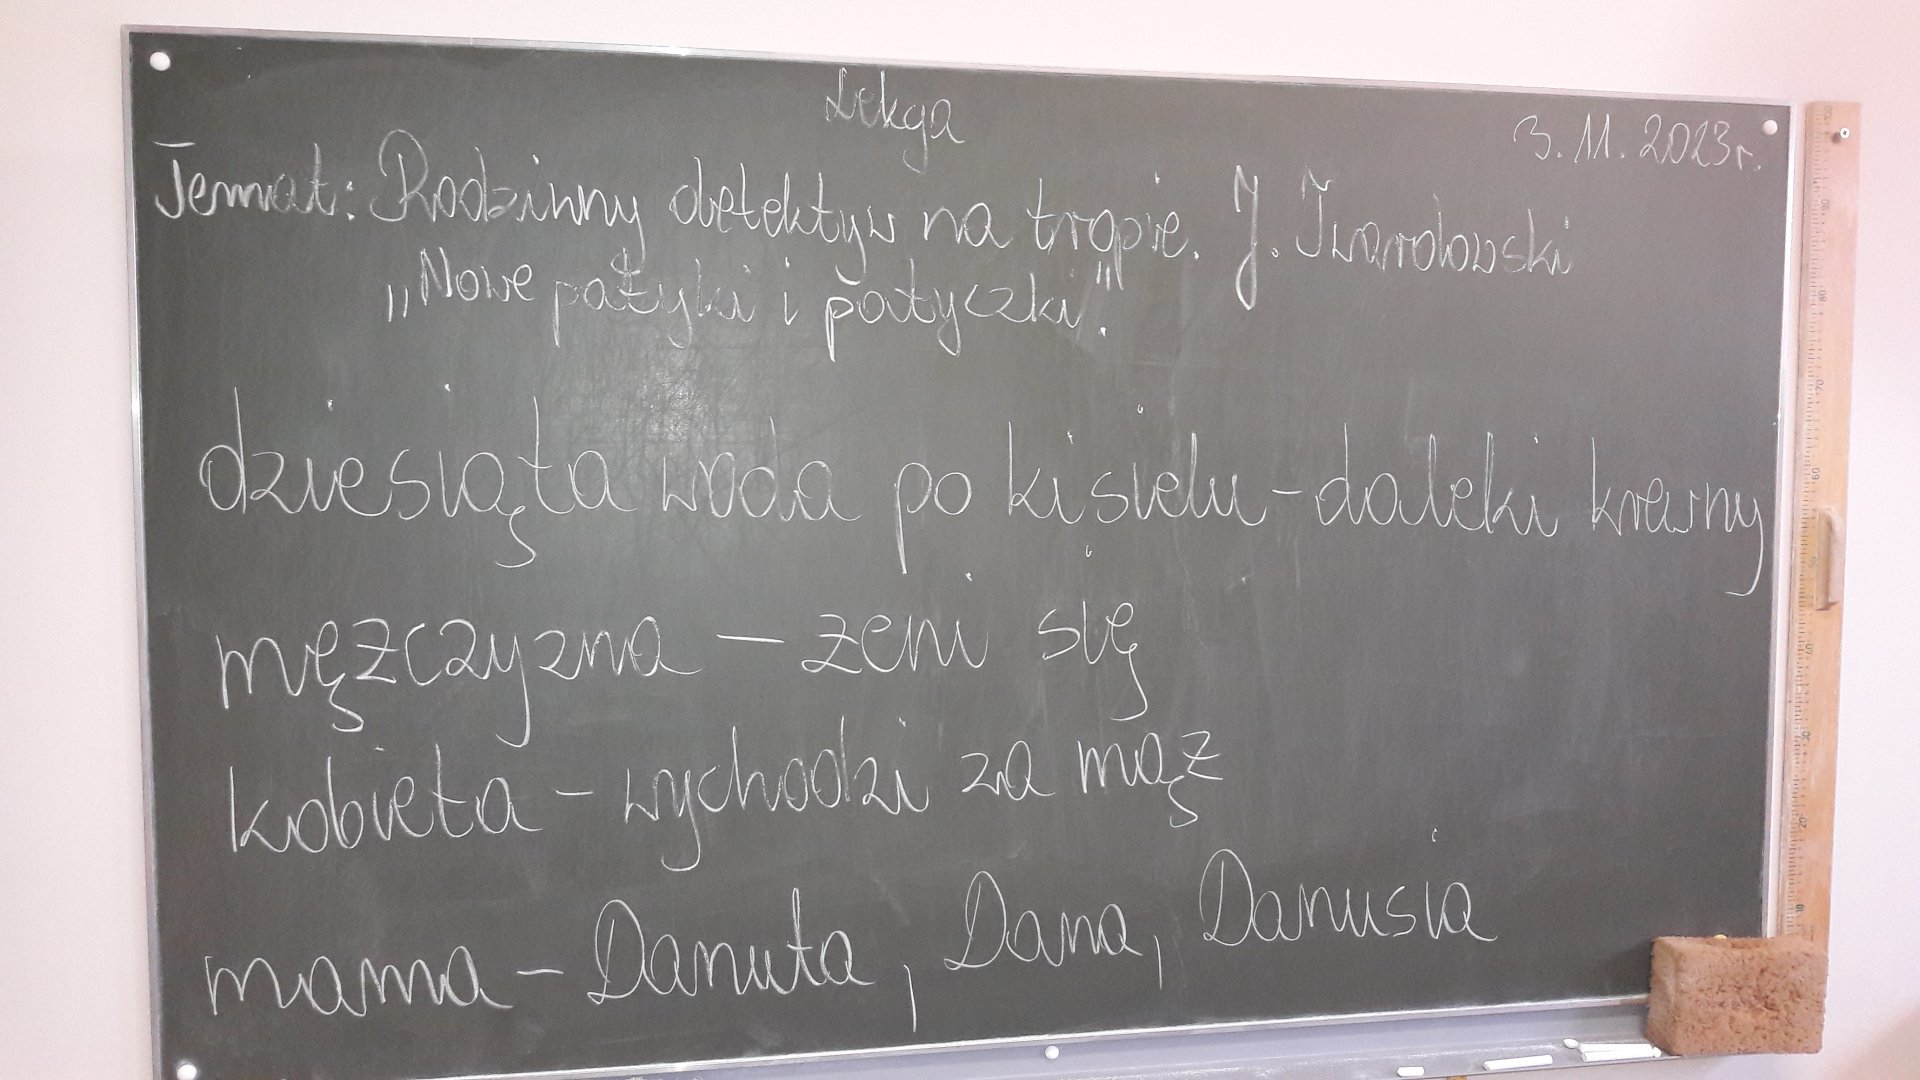 Lekcja
3. 11. 2023r.
Temat: Rodzinny detektyw na tropie. J. Twardowski
„Nowe patyki i patyczki".
dziesiąta woda po kisielu - daleki krewny
mężczyzna - żeni się
kobieta - wychodzi za mąż
mama - Danuta, Dana, Danusia